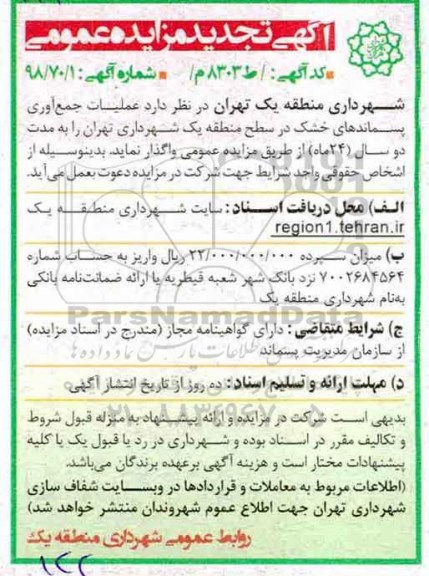 آگهی تجدید مزایده عمومی
کد آگهی: / ط ۸۳۰۳م/ شماره آگهی: ۹۸/۷۰/۱
شهرداری منطقه یک تهران در نظر دارد عملیات جمع‌آوری
پسماندهای خشک در سطح منطقه یک شهرداری تهران را به مدت
دو سال (۲۴ماه) از طریق مزایده عمومی واگذار نماید. بدینوسیله از
اشخاص حقوقی واجد شرایط جهت شرکت در مزایده دعوت بعمل می‌آید.
الف) محل دریافت اسناد: سایت شهرداری منطقه یک
region1.tehran.ir
ب) میزان سپرده ۲۲/۰۰۰/۰۰۰/۰۰۰ ریال واریز به حساب شماره
۷۰۰۲۶۸۴۵۶۴ نزد بانک شهر شعبه قیطریه یا ارائه ضمانت‌نامه بانکی
به‌نام شهرداری منطقه یک
ParsNamadData
ج) شرایط متقاضی: دارای گواهینامه مجاز (مندرج در اسناد مزایده)
از سازمان مدیریت پسماند
د) مهلت ارائه و تسلیم اسناد: ده روز از تاریخ انتشار آگهی
بدیهی است شرکت در مزایده و ارائه پیشنهاد به منزله قبول شروط
و تکالیف مقرر در اسناد بوده و شهرداری در رد یا قبول یک یا کلیه
پیشنهادات مختار است و هزینه آگهی برعهده برندگان می‌باشد.
(اطلاعات مربوط به معاملات و قراردادها در وبسایت شفاف سازی
شهرداری تهران جهت اطلاع عموم شهروندان منتشر خواهد شد)
روابط عمومی شهرداری منطقه یک